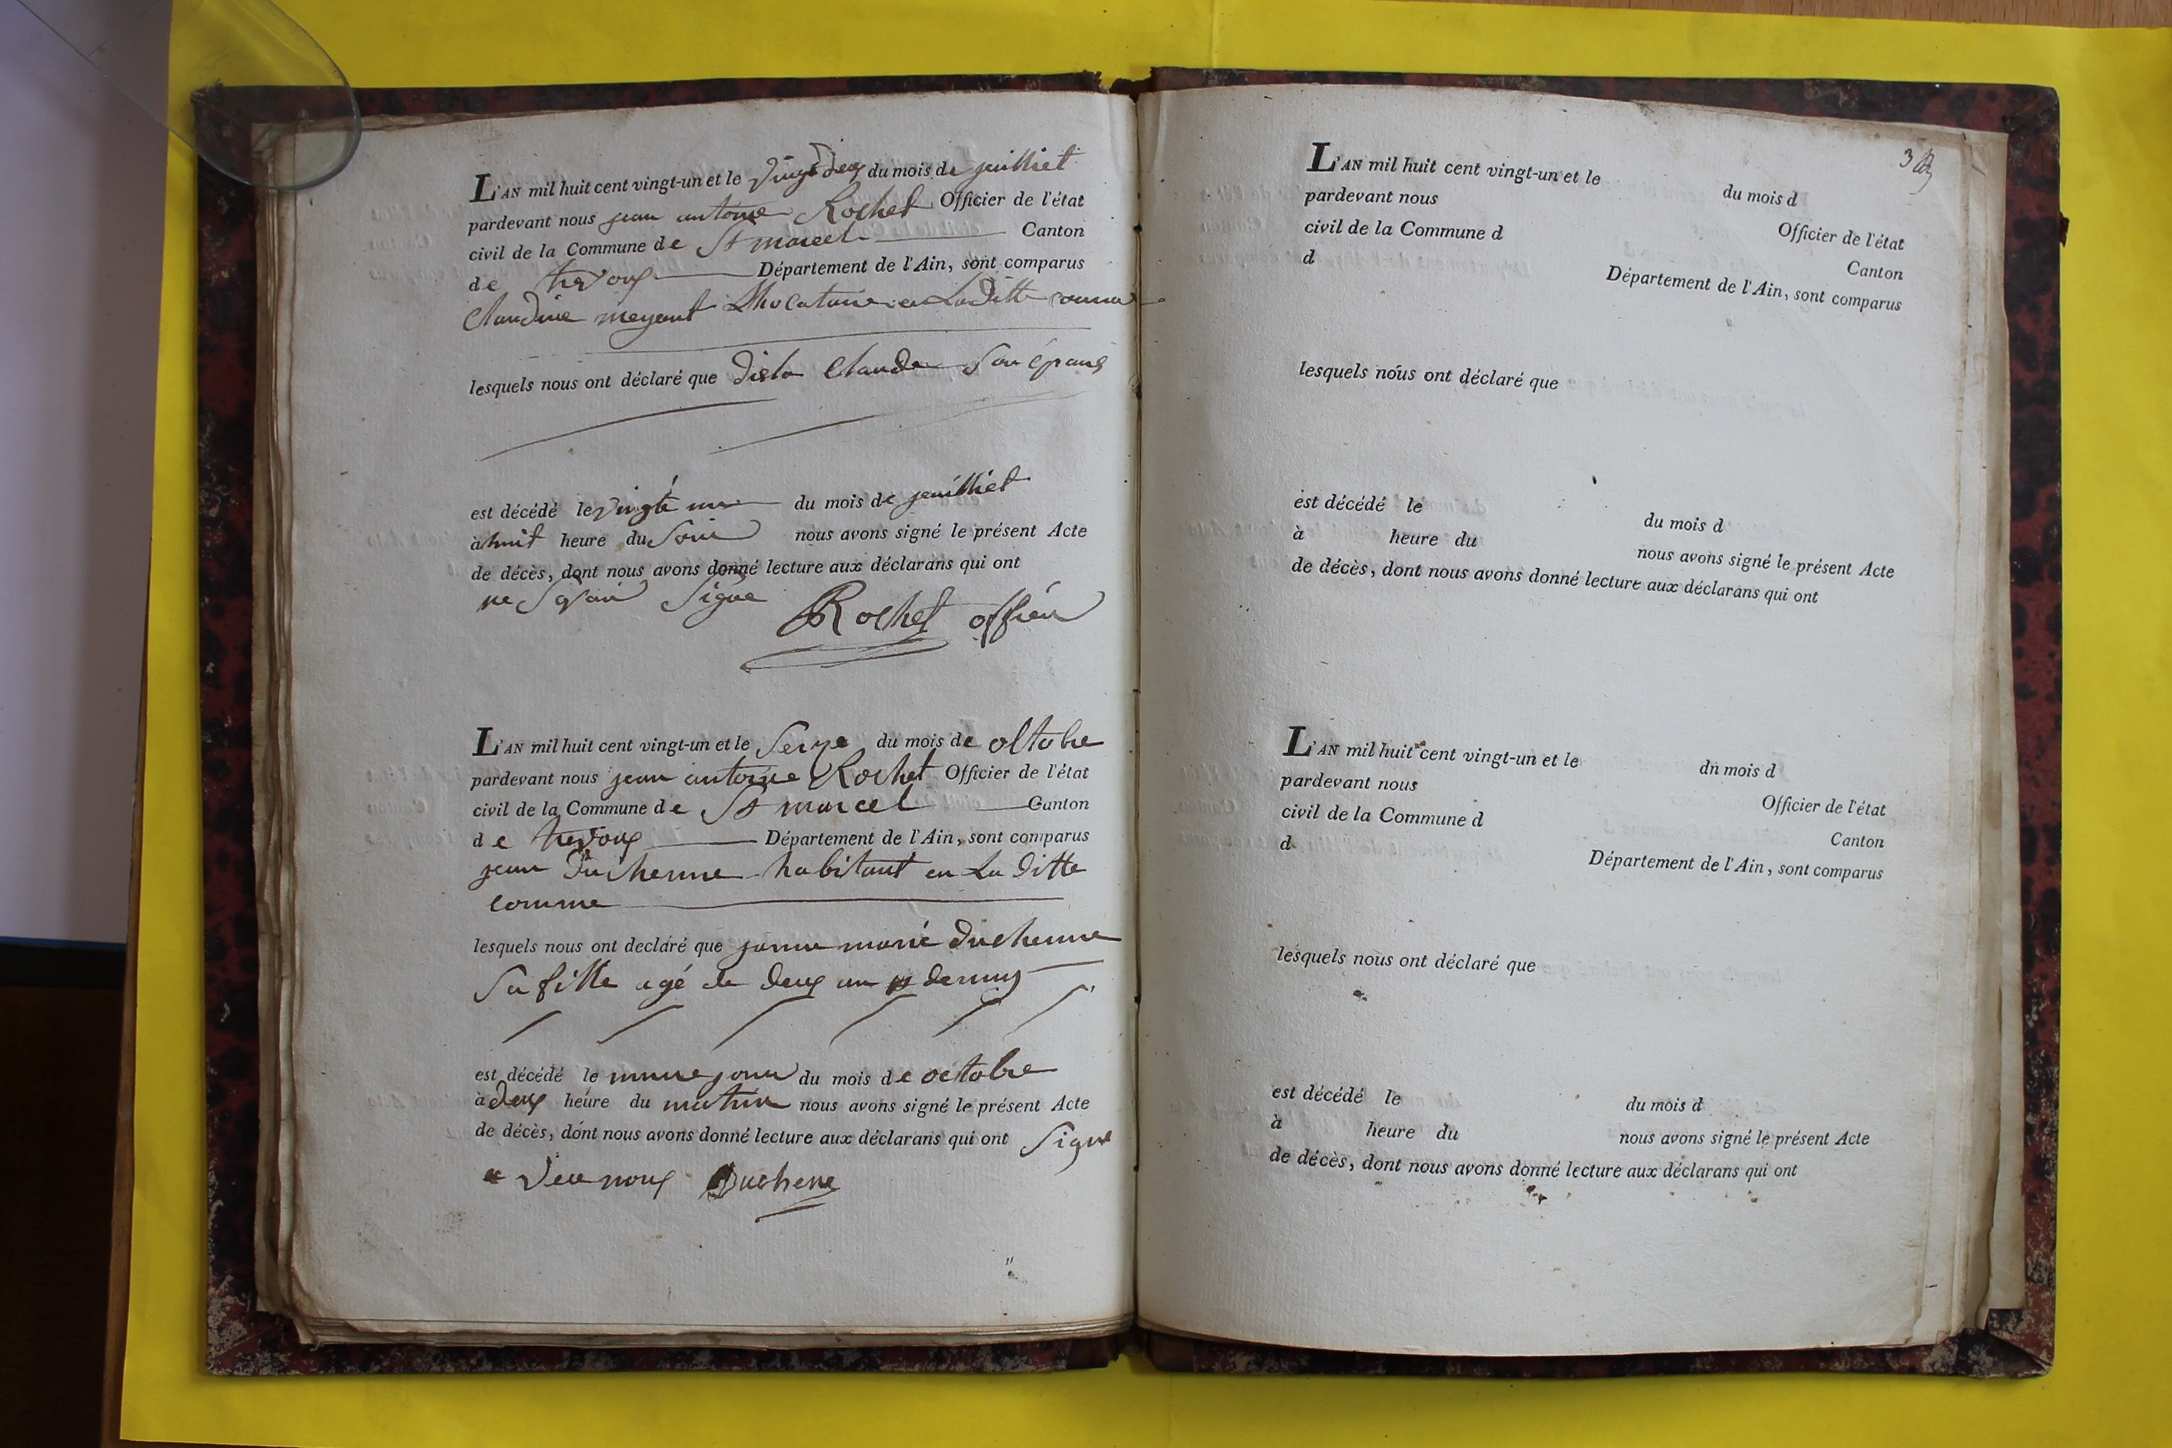 L'AN mil huit cent vingt-un et le vingt deux du mois de juilliet
pardevant nous jean antoine Rochet Officier de l'état
civil de la Commune de St marcel Canton
de trevoux Département de l'Ain, sont comparus
Claudine meyant en La ditte
lesquels nous ont déclaré que Claude Son époux
est décédé le vingté un du mois de jeuilliet
à huit heure du Soir nous avons signé le présent Acte
de décès, dont nous avons donné lecture aux déclarans qui ont
ne Signe
Rochet offien
L'AN mil huit cent vingt-un et le Seize du mois de oltobre
pardevant nous jean antoine Rochet Officier de l'état
civil de la Commune de St marcel Canton
de trevoux Département de l'Ain, sont comparus
jean Duchenne habitant en La ditte
comme
lesquels nous ont declaré que janne marié duchenne
Sa fille agé de deux an demus
est décédé le mume jour du mois de octobre
à deux heure du matin nous avons signé le présent Acte
de décès, dont nous avons donné lecture aux déclarans qui ont Signe
avec nous Duchene
3
L'AN mil huit cent vingt-un et le du mois d
pardevant nous Officier de l'état
civil de la Commune d Canton
d Département de l'Ain, sont comparus
lesquels nous ont déclaré que
est décédé le du mois d
à heure du nous avons signé le présent Acte
de décès, dont nous avons donné lecture aux déclarans qui ont
L'AN mil huit cent vingt-un et le dn mois d
pardevant nous Officier de l'état
civil de la Commune d Canton
d Département de l'Ain, sont comparus
lesquels nous ont déclaré que
est décédé le du mois d
à heure du nous avons signé le présent Acte
de décès, dont nous avons donné lecture aux déclarans qui ont